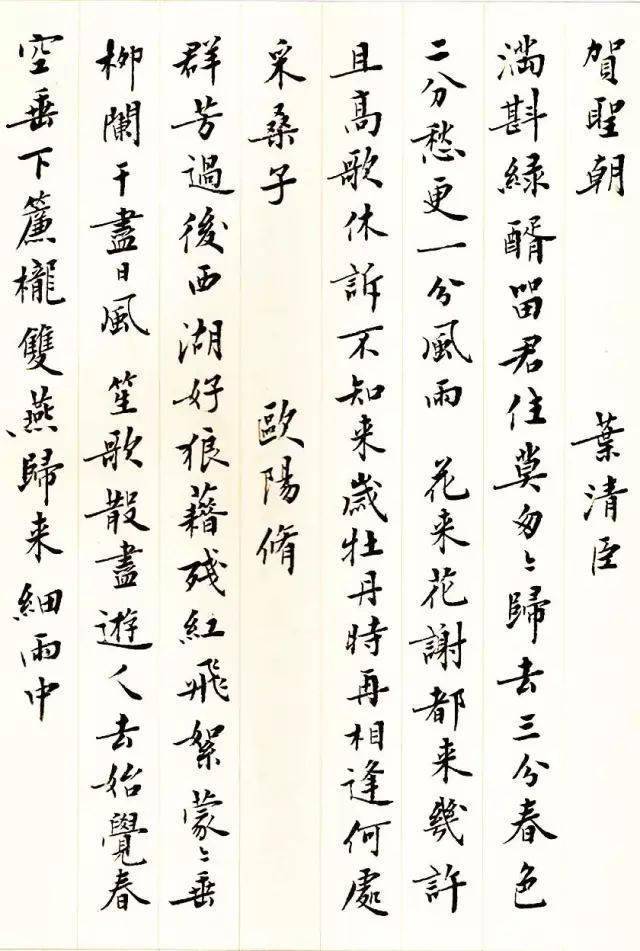 賀聖朝 葉清臣
滿斟緑醑留君住莫匆々歸去三分春色
二分愁更一分風雨 花来花謝都来幾許
且高歌休訴不知来歲牡丹時再相逢何處
采桑子 歐陽脩
群芳過後西湖好狼藉残紅飛絮蒙々垂
柳闌干盡日風 笙歌散盡遊人去始覺春
空垂下簾櫳雙燕歸来細雨中